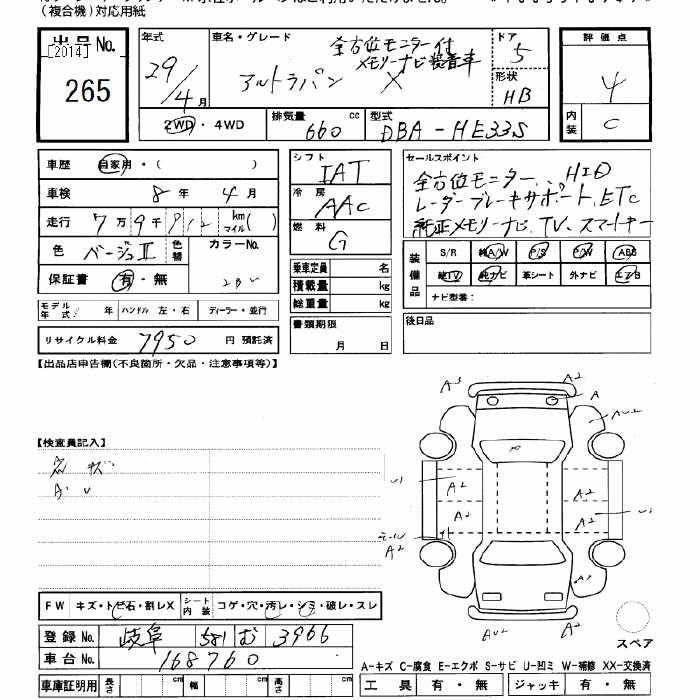 (複合機)対応用紙
出品No. [2014] 265
年式 29/4月
車名・グレード アルトラパン X
全方位モニター付
メモリーナビ装着車
ドア 5
形状 HB
評価点 4
内装 C
2WD・4WD
排気量 660 cc
型式 DBA-HE33S
車歴 自家用・( )
車検 8年 4月
走行 7万9千912 km マイル( )
色 ベージュII 色替 カラーNo. ZBV
保証書 有・無
モデル年式 年 ハンドル 左・右 ディーラー・並行
リサイクル料金 7950 円 預託済
シフト IAT
冷房 AAC
燃料 G
乗車定員 名
積載量 kg
総重量 kg
書類期限 月 日
セールスポイント
全方位モニター、HID
レーダーブレーキサポート、ETC
純正メモリーナビ、TV、スマートキー
装備品 S/R 純A/W P/S P/W ABS
純TV 純ナビ 革シート 外ナビ エアB
ナビ型番:
後日品
【出品店申告欄(不良箇所・欠品・注意事項等)】
【検査員記入】
A・U
FW キズ・トビ石・割レX シート内装 コゲ・穴・汚レ・シミ・破レ・スレ
登録No. 岐阜 581 む 3966
車台No. 168760
車庫証明用 長さ cm 幅 cm 高さ cm
A3 A2
A
AU2
U1 A2 A2
A2 A2
モール A2
A2
AU2 A2
スペア
A-キズ C-腐食 E-エクボ S-サビ U-凹ミ W-補修 XX-交換済
工具 有・無 ジャッキ 有・無